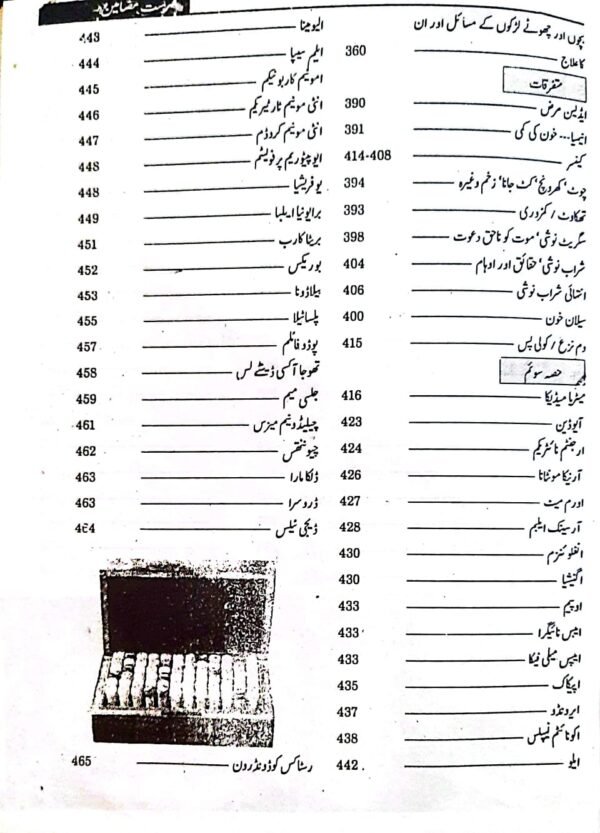 فہرست مضامین
بچوں اور چھوٹے لڑکوں کے مسائل اور ان
کا علاج 360
متفرقات
ایڈیسن مرض 390
انیمیا... خون کی کمی 391
کینسر 414-408
چوٹ' کھرونچ' کٹ جانا' زخم وغیرہ 394
تھکاوٹ / کمزوری 393
سگریٹ نوشی' موت کو ناحق دعوت 398
شراب نوشی' حقائق اور اوہام 404
انتہائی شراب نوشی 406
سیلان خون 400
دم نزع / کولی پس 415
حصہ سوئم
میٹریا میڈیکا 416
آیوڈین 423
ارجنٹم نائٹریکم 424
آرنیکا مونٹانا 426
اورم میٹ 427
آرسینک ایلبم 428
انفلوئنزم 430
اگنیشیا 430
اوپیم 433
ایبس نائیگرا 433
ایپس میلی فیکا 433
اپیکاک 435
ایرونڈو 437
اکونائٹم نیپلس 438
ایلو 442
ایلومینا 443
ایلیم سیپا 444
امونیم کاربونیکم 445
انٹی مونیم ٹارٹیریکم 446
انٹی مونیم کروڈم 447
ایوپیٹوریم پرفولیٹم 448
یوفریشیا 448
برایونیا ایلبا 449
بریٹا کارب 451
بوریکس 452
بیلاڈونا 453
پلساٹیلا 455
پوڈو فائلم 457
تھوجا آکسی ڈینٹے لس 458
جلسی میم 459
چیلیڈونیم میزس 461
چیونینتھس 462
ڈلکا مارا 463
ڈروسرا 463
ڈیجی ٹیلس 464
رسٹاکس کوڈونڈرون 465